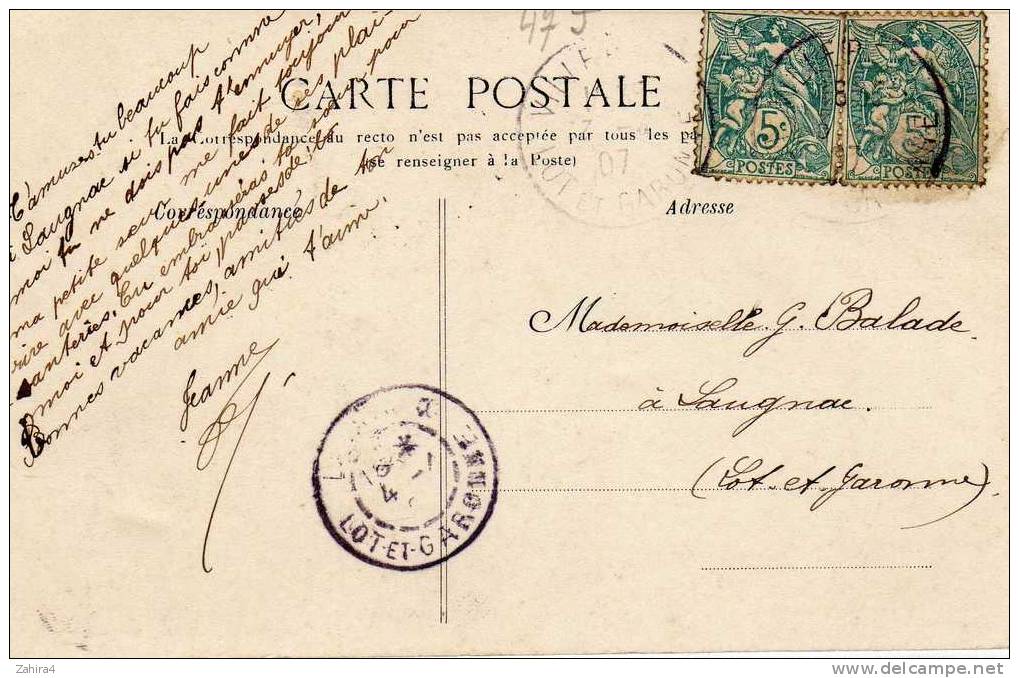 47 J
CARTE POSTALE
(La Correspondance au recto n'est pas acceptée par tous les pa
(se renseigner à la Poste)
Correspondance
Adresse
T'amuses-tu beaucoup
à Laugnac si tu fais comme
moi tu ne dois pas t'ennuyer,
ma petite seur me fait toujours
rire avec quelques unes de ses plai-
santeries, Tu embrasseras ta sœur pour
moi et pour toi, passes de
Bonnes vacances, amitiés de ton
amie qui t'aime,
Jeanne
5c
POSTES
5c
POSTES
07
LOT ET GARONNE
Mademoiselle G. Balade
à Laugnac.
(Lot-et-Garonne)
4
LOT-ET-GARONNE
Zahira4
www.delcampe.net